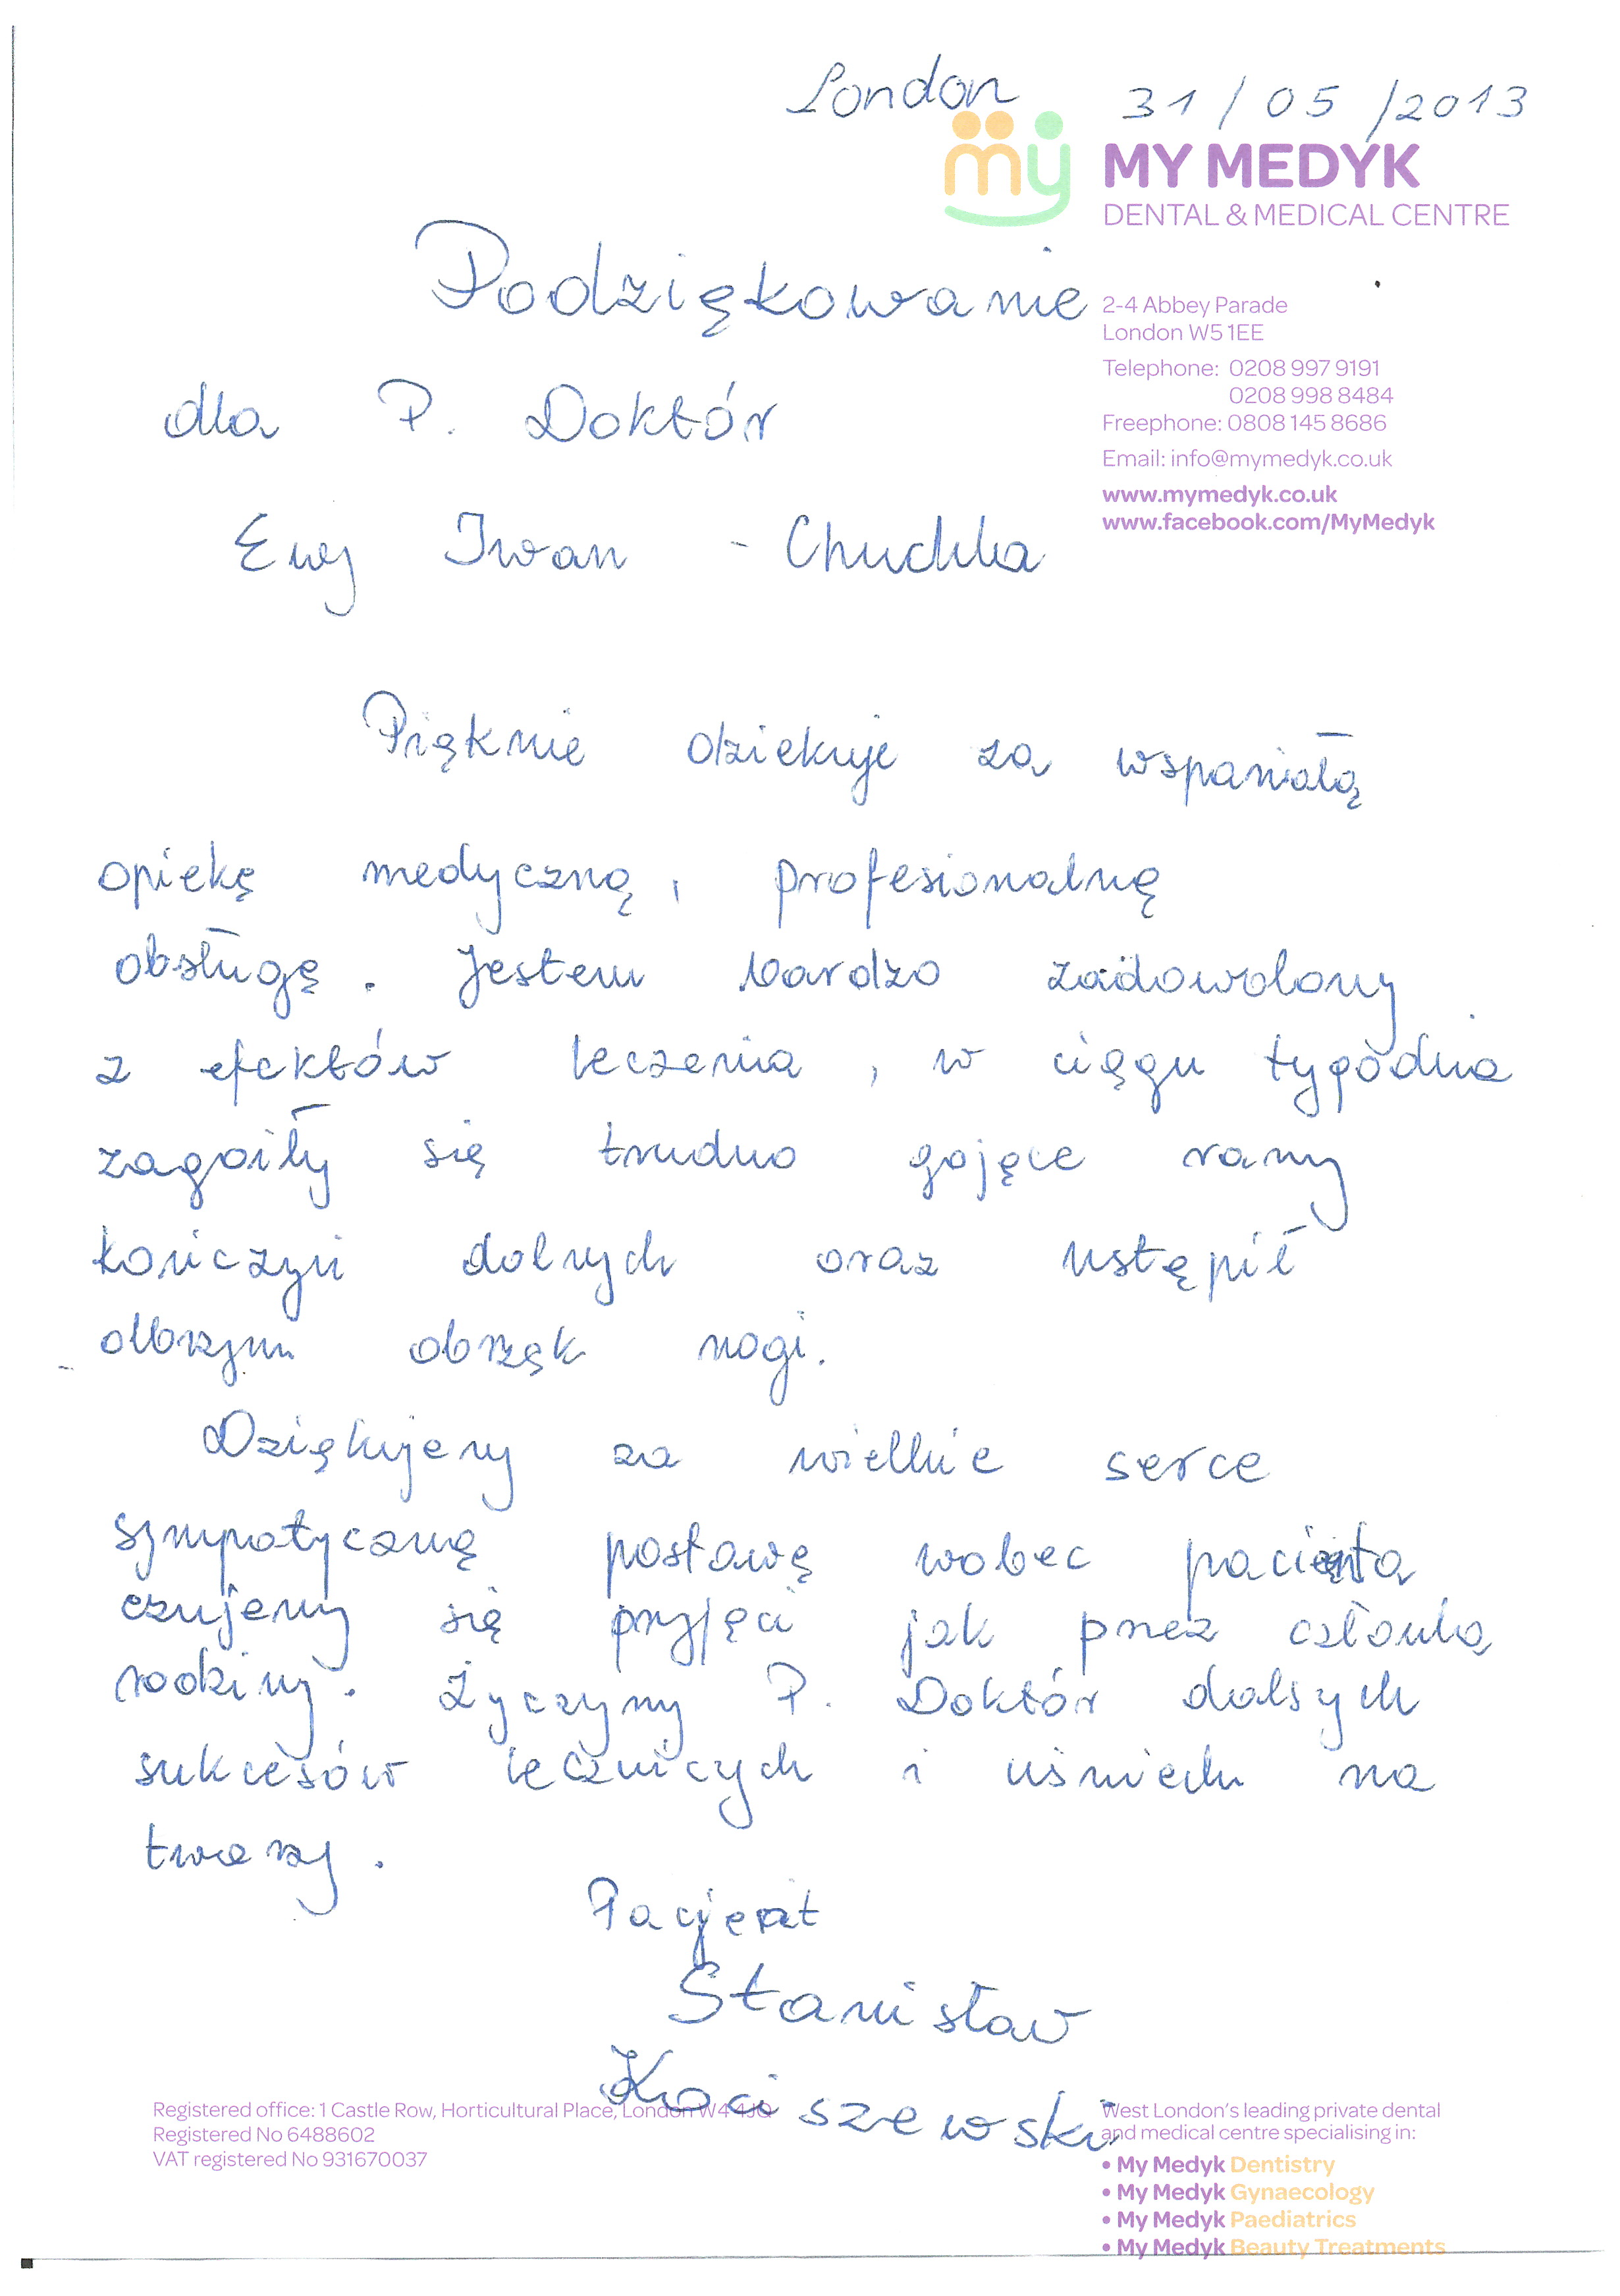 London 31/05/2013
my MY MEDYK
DENTAL & MEDICAL CENTRE
Podziękowanie
2-4 Abbey Parade
London W5 1EE
Telephone: 0208 997 9191
0208 998 8484
Freephone: 0808 145 8686
Email: info@mymedyk.co.uk
www.mymedyk.co.uk
www.facebook.com/MyMedyk
dla P. Doktór
Ewy Iwan - Chuchla
Pięknie dziekuje za wspaniałą
opiekę medyczną, profesionalnę
obsługę. Jestem bardzo zadowolony
z efektów leczenia, w cięgu tygodnia
zagoiły się trudno gojęce rany
kończyń dolnych oraz ustępił
olbrzym obrzęk nogi.
Dziękujemy za wielkie serce
sympatycznę postawę wobec pacienta
czujemy się przyjęci jak przez członka
rodziny. Życzymy P. Doktór dalsych
sukcesów leczniczych i uśmiechu na
twarzy.
Pacjent
Stanisław
Kociszewski
Registered office: 1 Castle Row, Horticultural Place, London W4 4JQ
Registered No 6488602
VAT registered No 931670037
West London's leading private dental
and medical centre specialising in:
• My Medyk Dentistry
• My Medyk Gynaecology
• My Medyk Paediatrics
• My Medyk Beauty Treatments